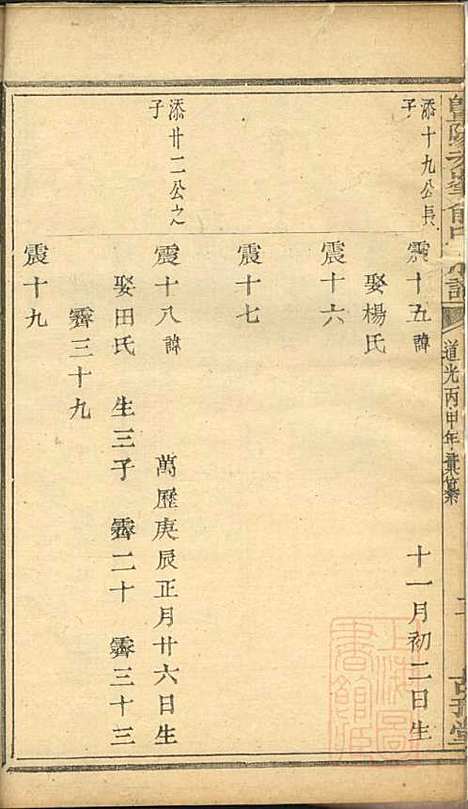 道光丙申年彙纂
添十九公長子
震十五諱 十一月初二日生
娶楊氏
震十六
震十七
添廿二公之子
震十八諱 萬歷庚辰正月廿六日生
娶田氏 生三子 霽二十 霽三十三
霽三十九
震十九